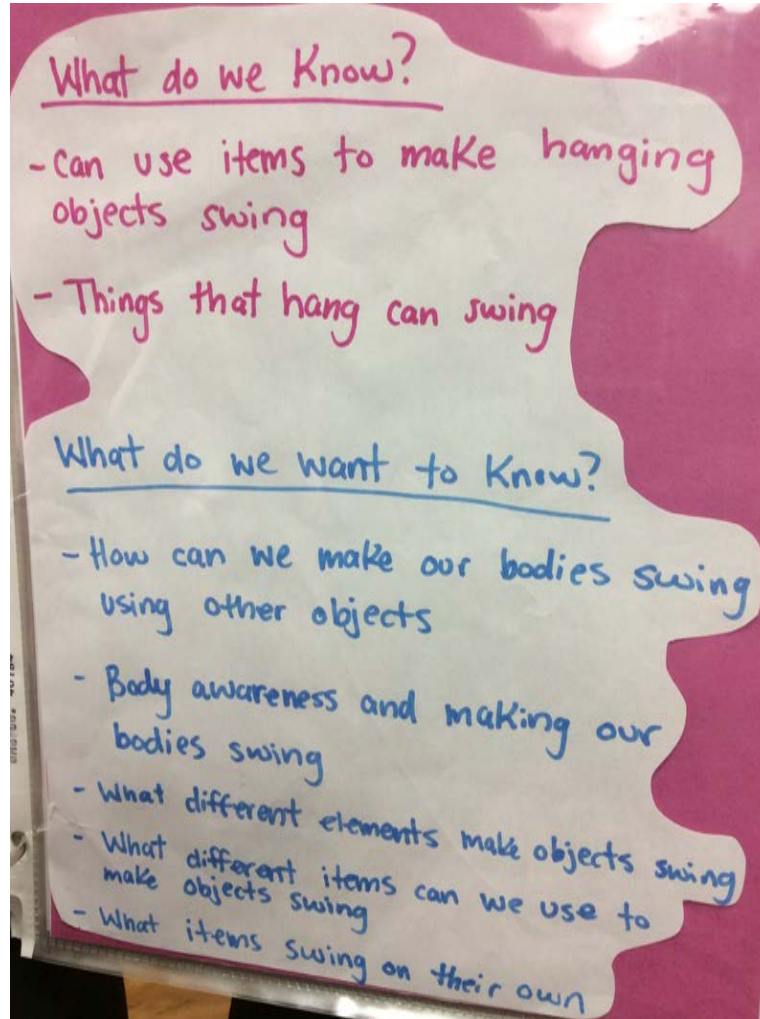 What do we Know?
- Can use items to make hanging
objects swing
- Things that hang can swing
What do we want to Know?
- How can we make our bodies swing
using other objects
- Body awareness and making our
bodies swing
- What different elements make objects swing
- What different items can we use to
make objects swing
- What items swing on their own